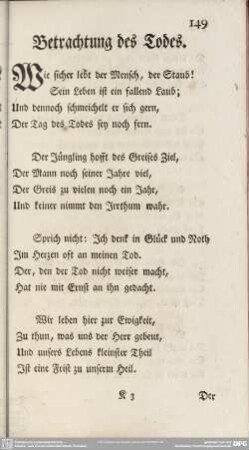 149
Betrachtung des Todes.
Wie sicher lebt der Mensch, der Staub!
Sein Leben ist ein fallend Laub;
Und dennoch schmeichelt er sich gern,
Der Tag des Todes sey noch fern.
Der Jüngling hofft des Greises Ziel,
Der Mann noch seiner Jahre viel,
Der Greis zu vielen noch ein Jahr,
Und keiner nimmt den Irrthum wahr.
Sprich nicht: Ich denk in Glück und Noth
Im Herzen oft an meinen Tod.
Der, den der Tod nicht weiser macht,
Hat nie mit Ernst an ihn gedacht.
Wir leben hier zur Ewigkeit,
Zu thun, was uns der Herr gebeut,
Und unsers Lebens kleinster Theil
Ist eine Frist zu unserm Heil.
K 3 Der